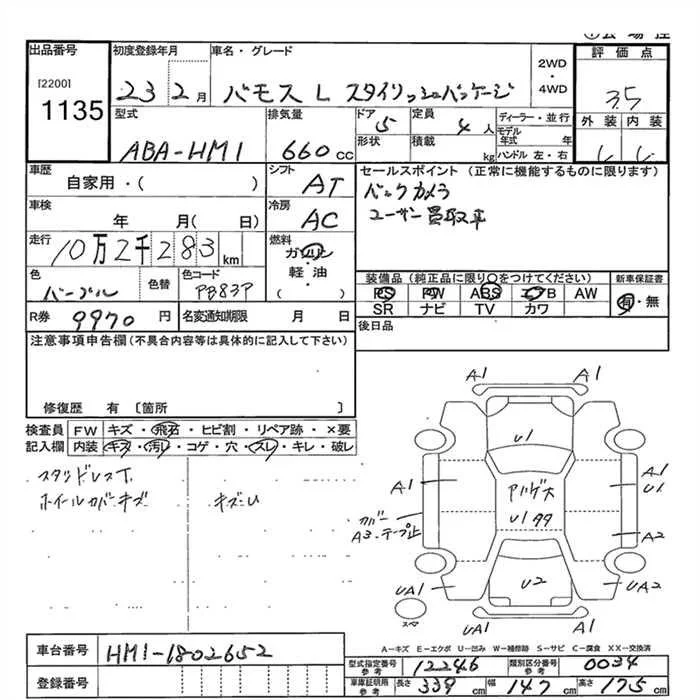 出品番号
[2200]
1135
初度登録年月
23 2月
車名・グレード
バモス L スタイリッシュパッケージ
2WD
・
4WD
評価点
3.5
外装 内装
型式
ABA-HM1
排気量
660cc
ドア
5
形状
定員
4人
積載
kg
ディーラー・並行
モデル年式 年
ハンドル 左・右
車歴
自家用・( )
シフト
AT
セールスポイント (正常に機能するものに限ります)
バックカメラ
ユーザー買取車
車検
年 月( 日)
冷房
AC
走行
10万2千283km
燃料
ガソリン
・
軽油
・
( )
色
パープル
色替
色コード
PB83P
装備品(純正品に限り○をつけてください)
PS PW ABS エアB AW
SR ナビ TV カワ
新車保証書
有・無
R券
9970円
名変通知期限 月 日
後日品
注意事項申告欄(不具合内容等は具体的に記入して下さい)
修復歴 有 [箇所 ]
検査員記入欄
FW キズ・飛石・ヒビ割・リペア跡・×要
内装 キズ・汚レ・コゲ・穴・スレ・キレ・破レ
スタッドレスT
ホイールカバーキズ
キズU
A1 A1
U1
A1
アルゲ大
U1
A1
U1
カバー
A3・テープ止
A2
UA1
U2
UA2
スペア
UA1 A1
A-キズ E-エクボ U-凹み W-補修跡 S-サビ C-腐食 XX-交換済
車台番号
HM1-1802652
登録番号
型式指定番号 参考
12246
類別区分番号 参考
0034
車庫証明用 参考
長さ 339cm 幅 147cm 高さ 175cm